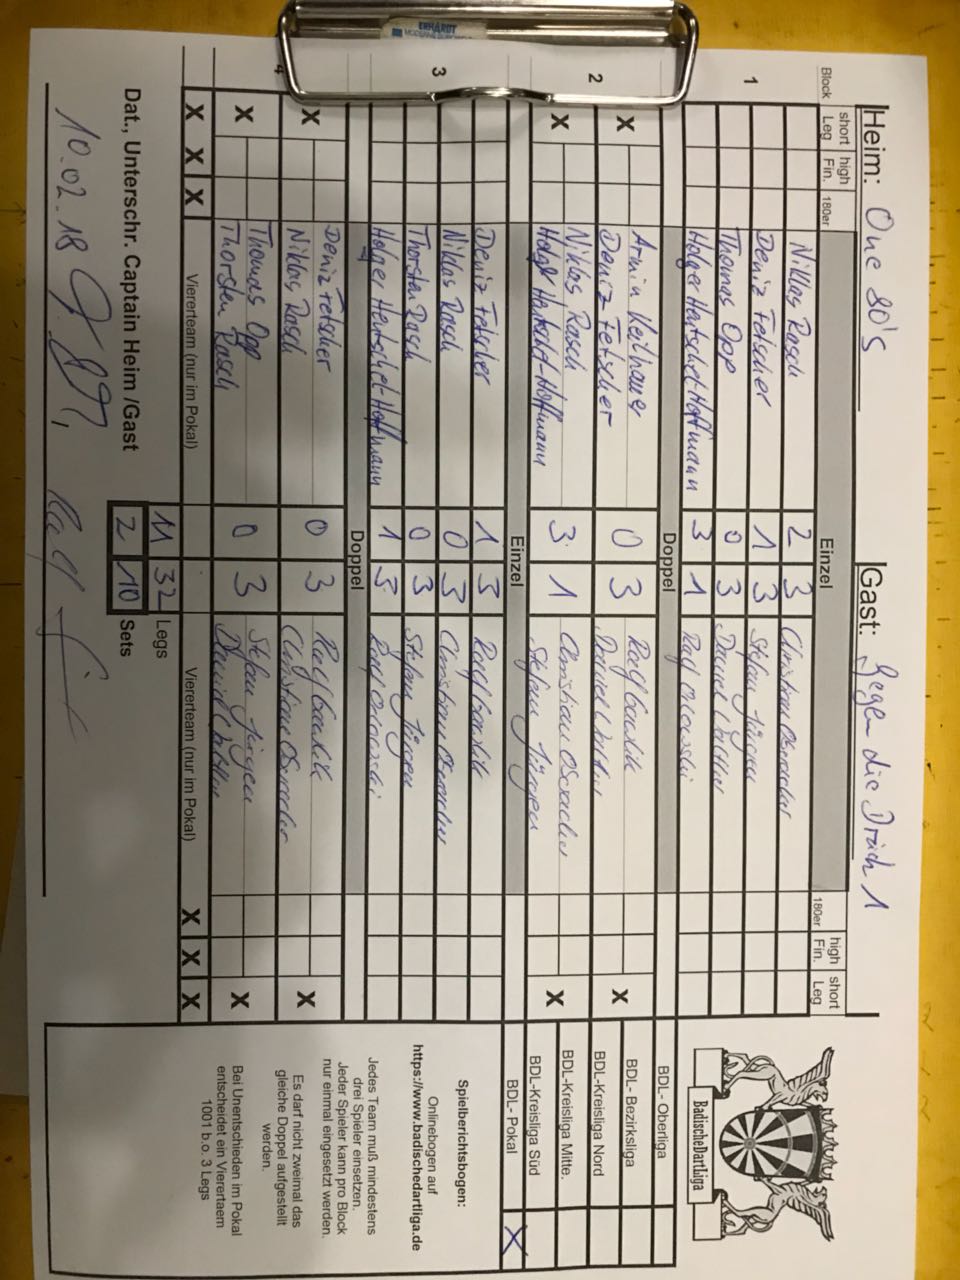 ERHARDT
Heim: One 80's
Gast: Gegen die Dräch 1
Block short Leg high Fin. 180er Einzel 180er high Fin. short Leg
1
Niklas Rasch 2 3
Deniz Fetscher 1 3 Stefan Jürgen
Thomas Opp 0 3
Holger Hertschel-Hoffmann 3 1 Ralf
Doppel
2
Armin
X 0 3 X
Deniz Fetscher
Niklas Rasch Christian
X 3 1 X
Holger Hertschel-Hoffmann Stefan Jürgen
Einzel
3
Deniz Fetscher 1 3 Ralf
Niklas Rasch 0 3 Christian
Thorsten Rasch 0 3 Stefan Jürgen
Holger Hertschel-Hoffmann 1 3 Ralf
Doppel
4
Deniz Fetscher Ralf
X 0 3 X
Niklas Rasch Christian
Thomas Opp Stefan Jürgen
X 0 3 X
Thorsten Rasch
X X X Viererteam (nur im Pokal) Viererteam (nur im Pokal) X X X
11 32 Legs
2 10 Sets
Dat., Unterschr. Captain Heim /Gast
10.02.18
BadischeDartLiga
BDL- Oberliga
BDL- Bezirksliga
BDL-Kreisliga Nord
BDL-Kreisliga Mitte.
BDL-Kreisliga Süd
BDL- Pokal X
Spielberichtsbogen:
Onlinebogen auf
https://www.badischedartliga.de
Jedes Team muß mindestens
drei Spieler einsetzen.
Jeder Spieler kann pro Block
nur einmal eingesetzt werden.
Es darf nicht zweimal das
gleiche Doppel aufgestellt
werden.
Bei Unentschieden im Pokal
entscheidet ein Vierertaem
1001 b.o. 3 Legs